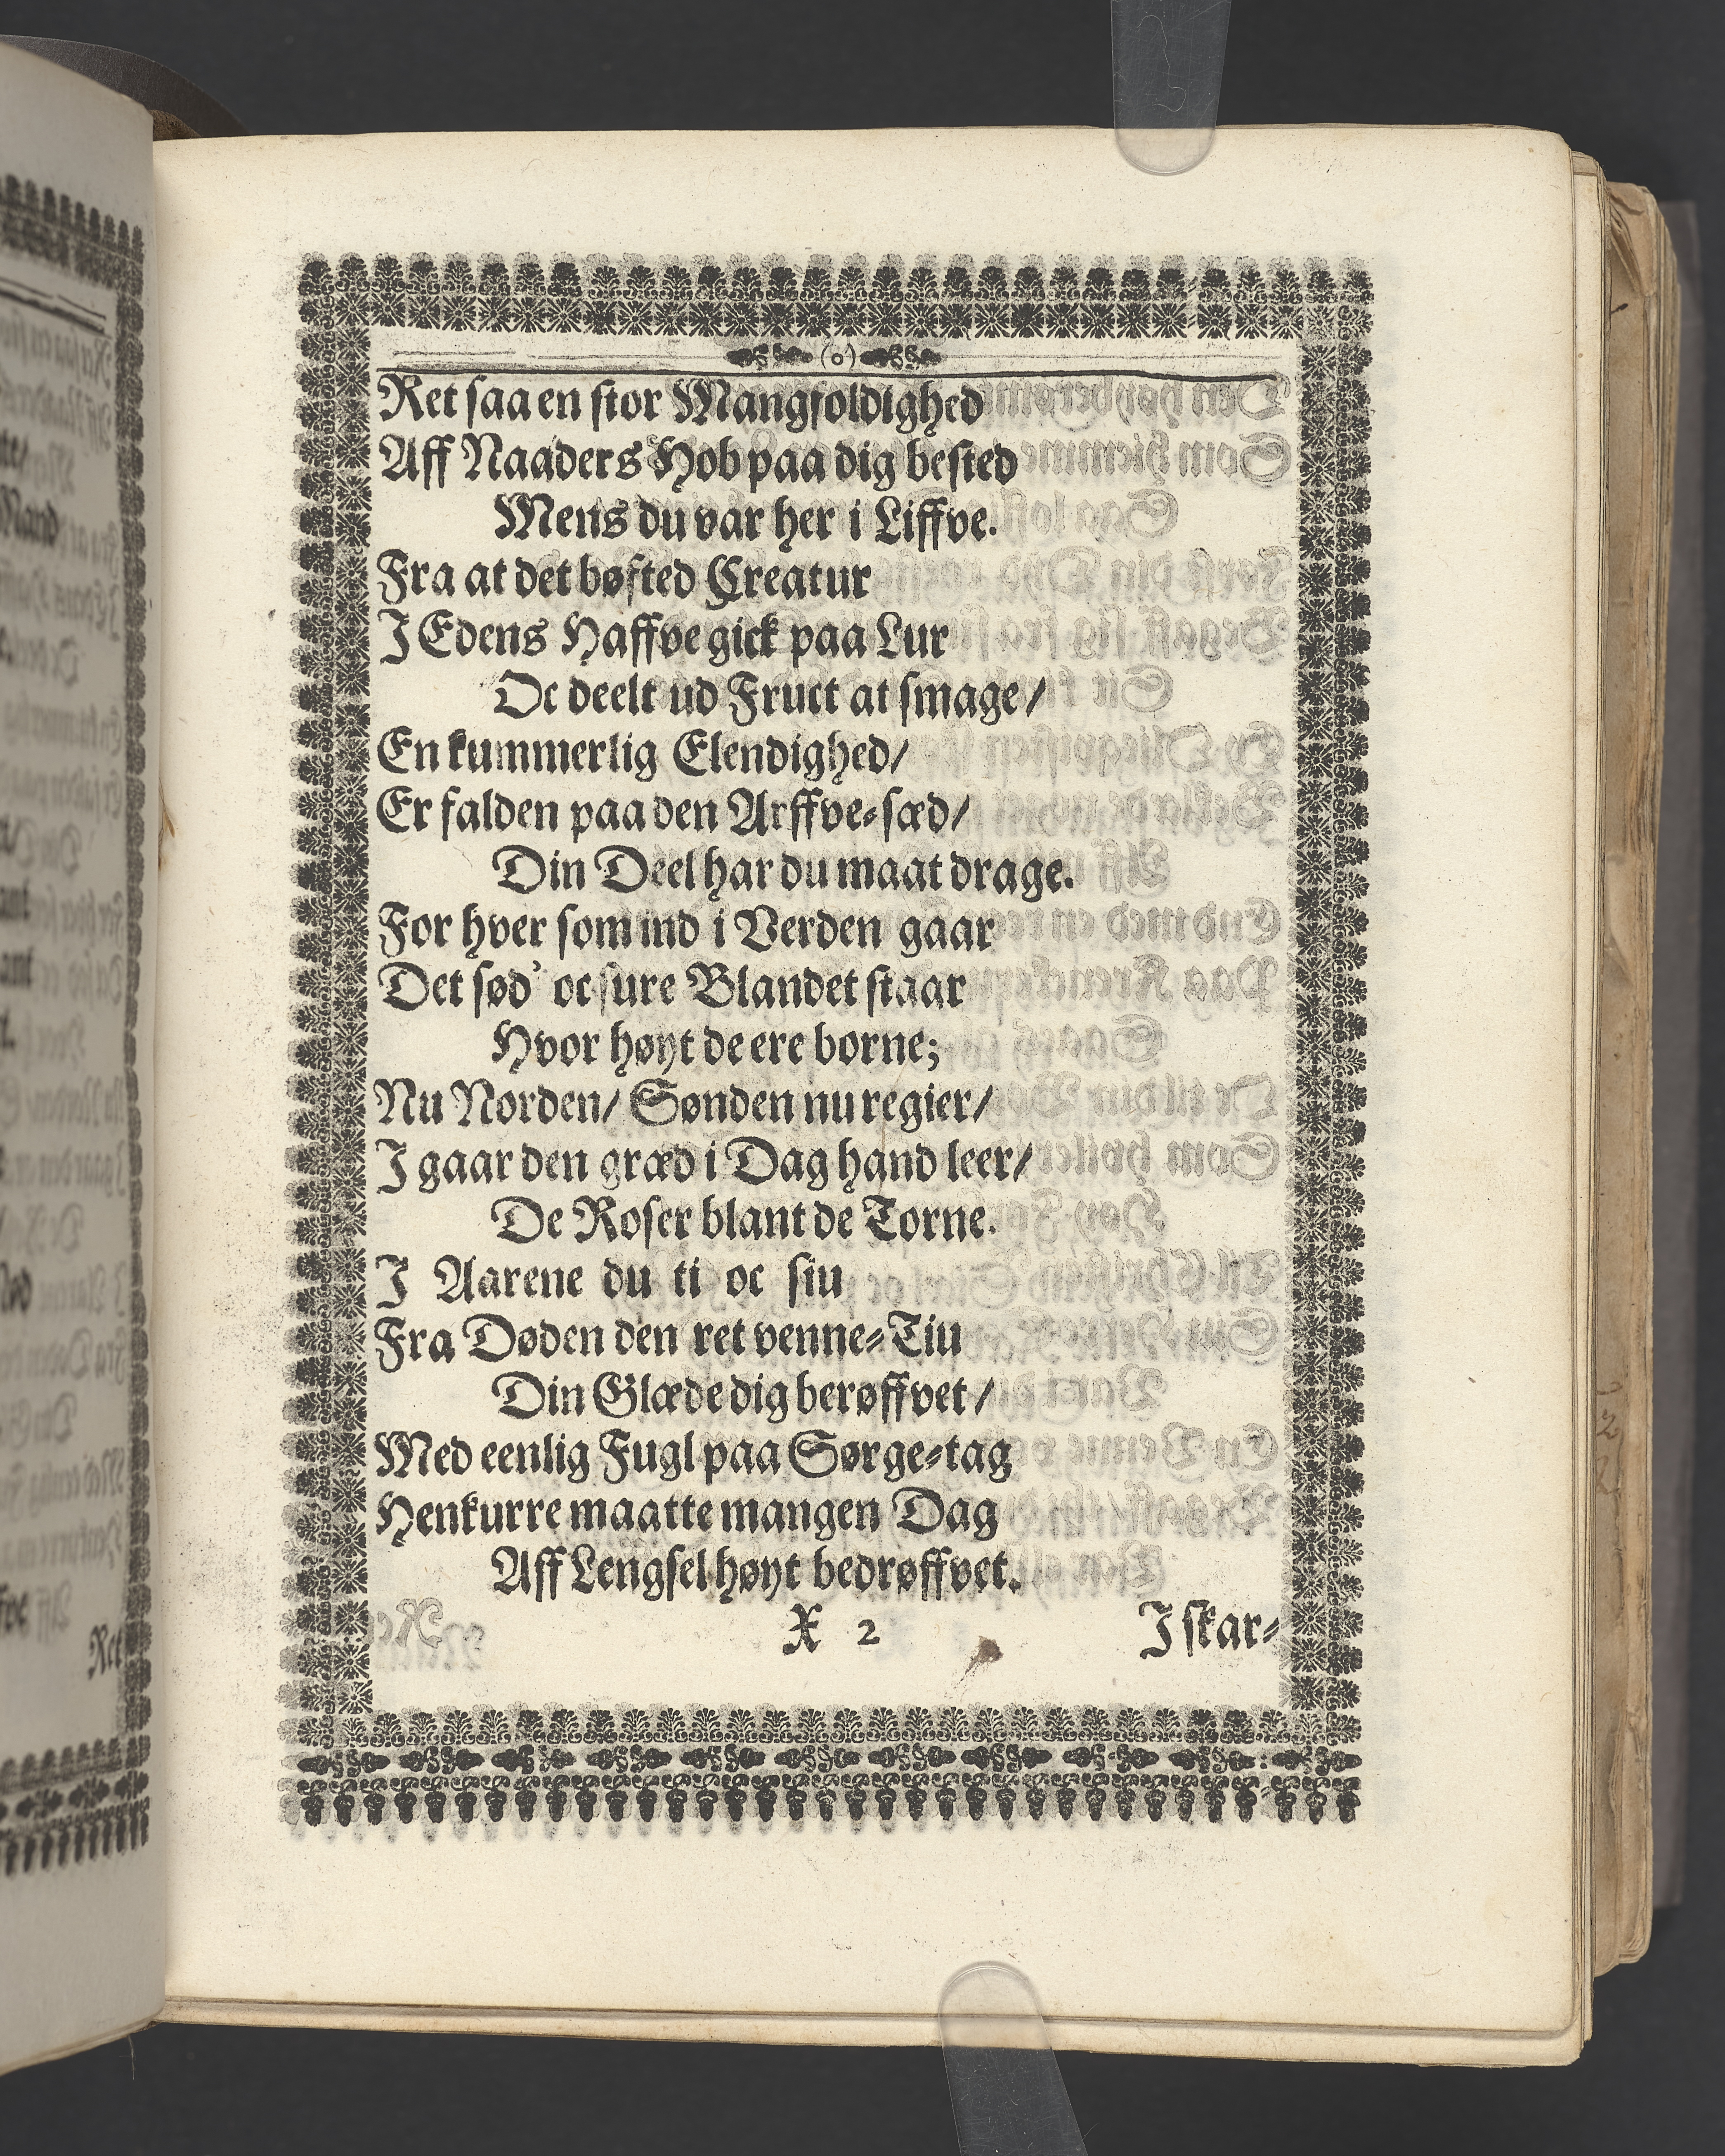 (o)
Ret saa en stor Mangfoldighed
Aff Naaders Hob paa dig bested
Mens du var her i Liffve.
Fra at det bøfted Creatur
I Edens Haffve gick paa Lur
Oc deelt ud Fruct at smage/
En kummerlig Elendighed/
Er falden paa den Arffve-sæd/
Din Deel har du maat drage.
For hver som ind i Verden gaar
Det sød' oc sure Blandet staar
Hvor høyt de ere borne;
Nu Norden/ Sønden nu regier/
I gaar den græd i Dag hand leer/
De Roser blant de Torne.
I Aarene du ti oc siu
Fra Døden den ret venne-Tiu
Din Glæde dig berøffvet/
Med eenlig Fugl paa Sørge-tag
Henkurre maatte mangen Dag
Aff Lengsel høyt bedrøffvet.
X 2
I skar-
Ret